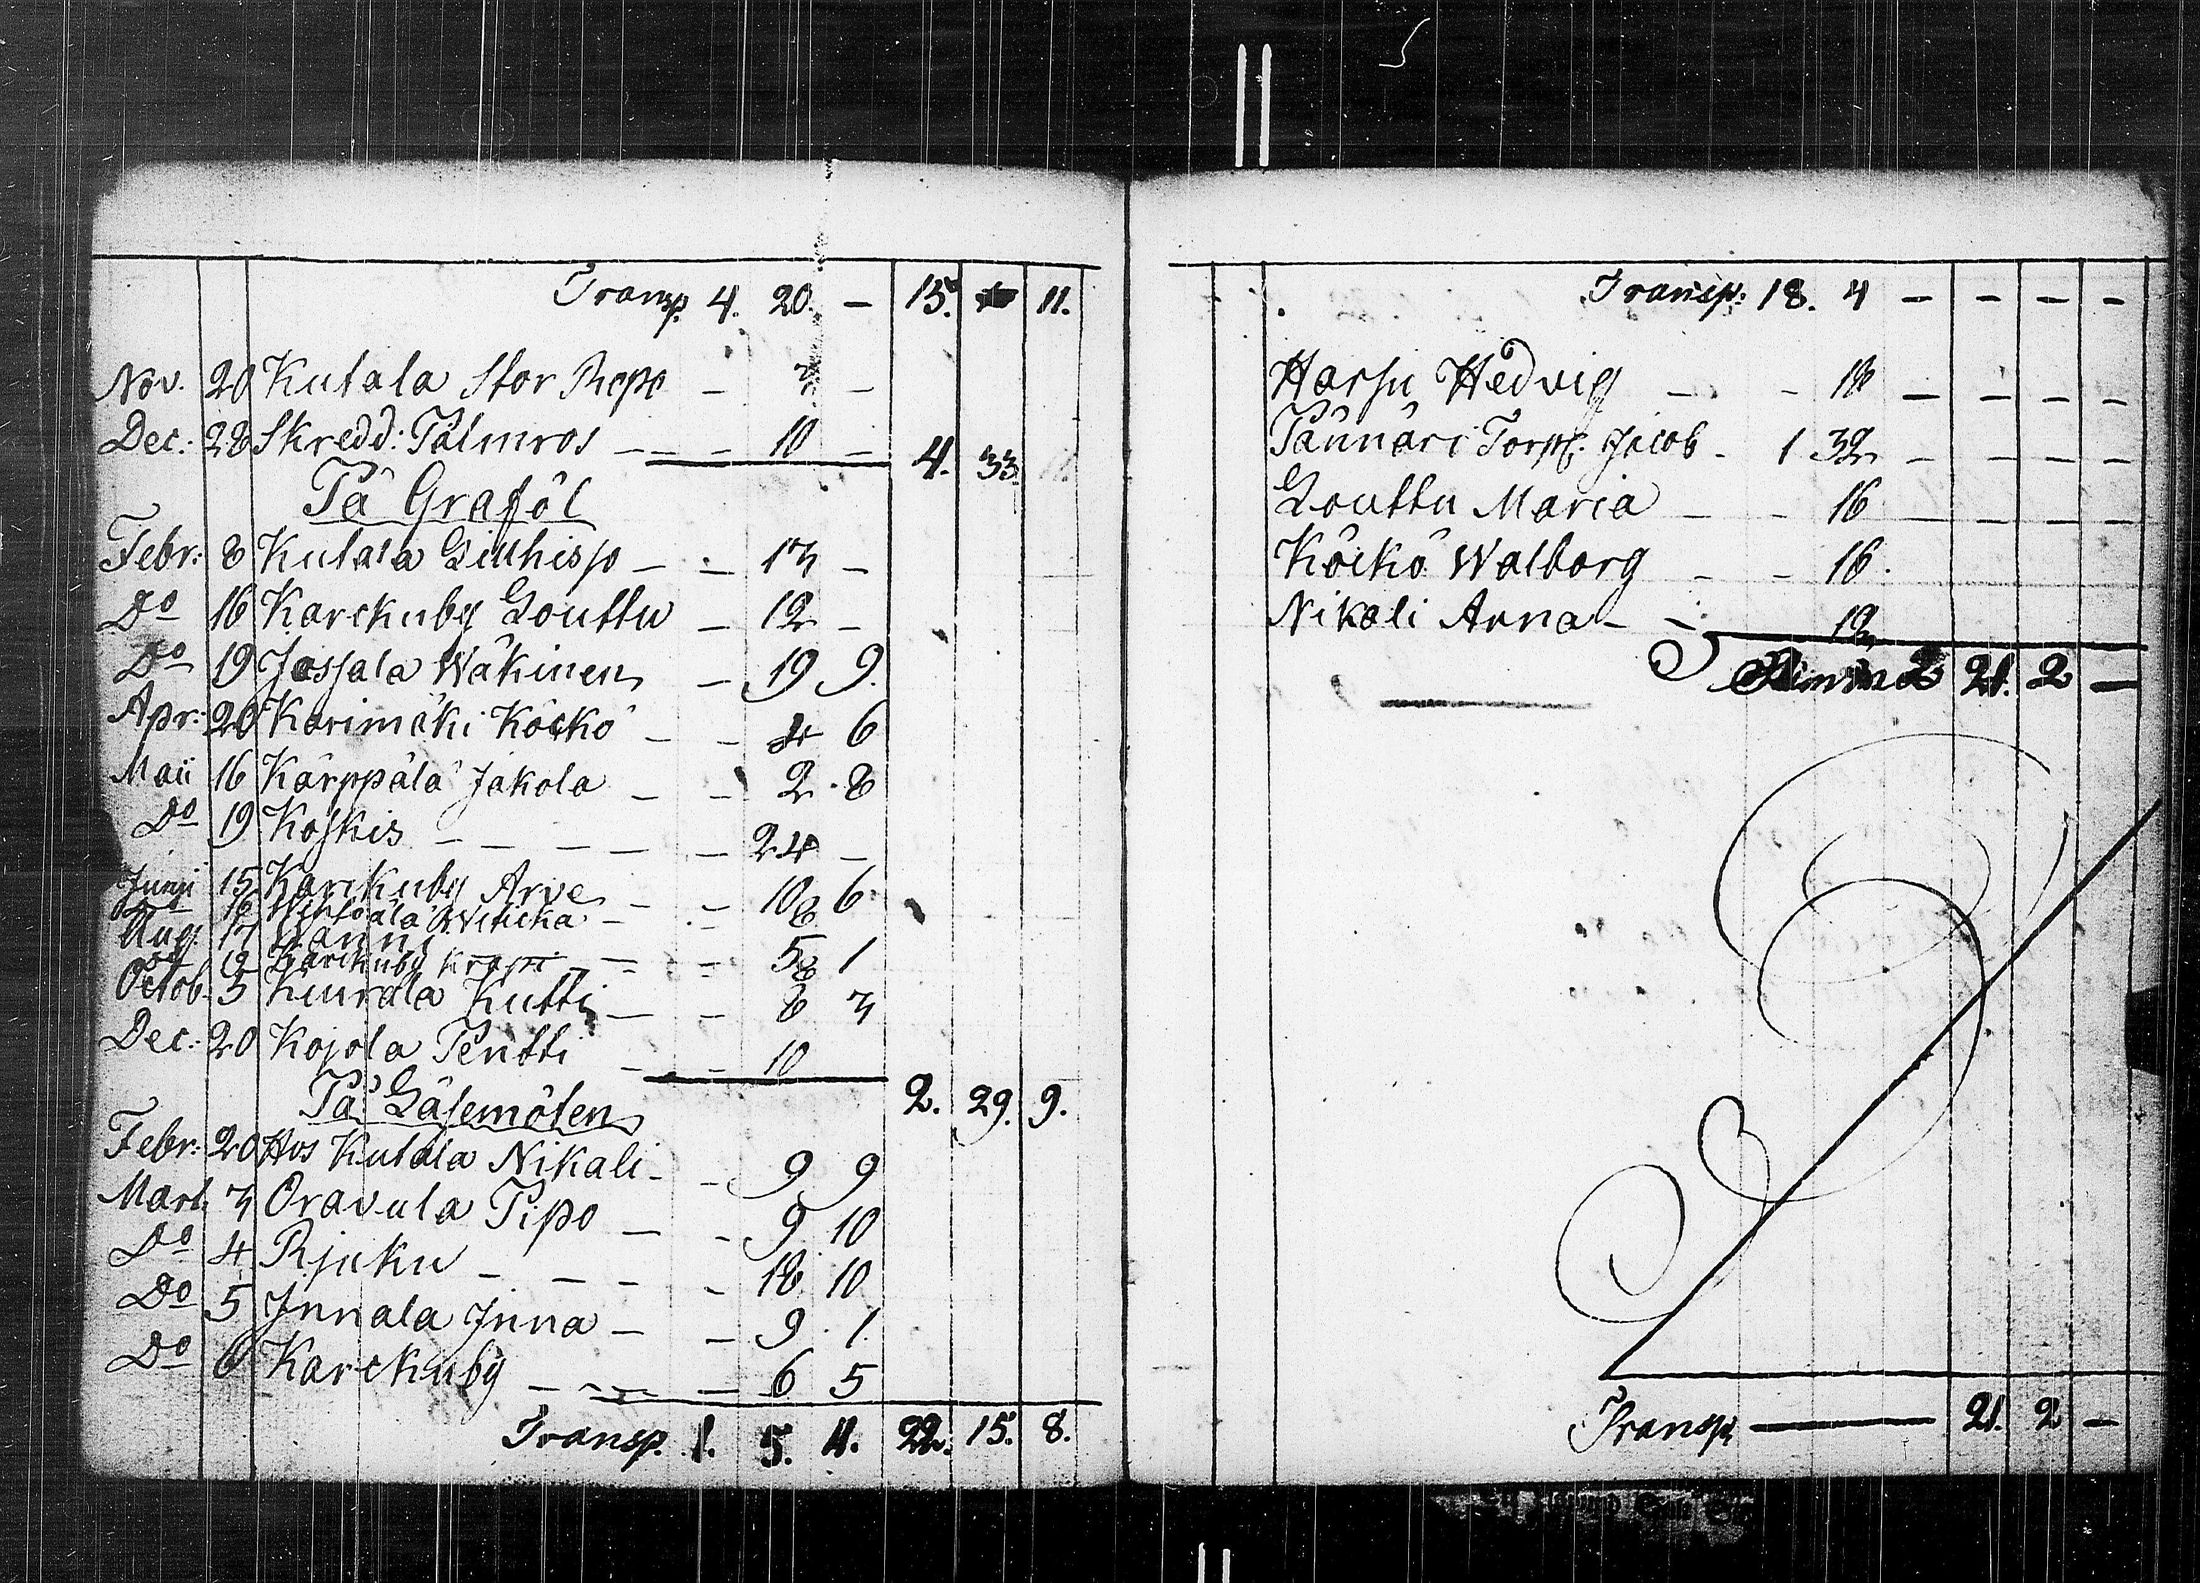 Transp. 4. 20. — 15. 11.
Nov. 20 Kutala Stor Repo — 3 —
Dec: 28 Skredd: Palmros — — — 10 — 4. 33.
På Graföl
Febr: 8 Kutala Liuhisso — — 13 —
Do 16 Karckuby Louttu — 12 —
Do 19 Jossala Wäkinen — 19 9.
Apr: 20 Karimäki Köckö — — 4 6
Maii 16 Kärppälä Jakola — — 2. 8
Do 19 Koskis — — — — — 24 —
Junii 15 Karckuby Arve — — 10 6
8
Aug. 17 Wänni — — 5 1
Do 19 Karckuby Krapi — — 8
Octob. 5 Kiurala Kutti — — 8 3
Dec: 20 Kojola Pentti — — 10
2. 29. 9.
På Gäfemölen
Febr: 20 Hos Kutala Nikali — — 9 9
Mart. 3 Oravula Pipo — — 9 10
Do 4 Rjuku — — — — 18 10
Do 5 Innala Inna — — 9. 1.
Do 6 Karckuby — — — — 6 5
Transp. 1. 5. 4. 22. 15. 8.
Transp: 18. 4 — — — —
Harju Hedvig — — 18 — — — —
Pännäri Torp. Jacob — 1 32 — — — —
Louttu Maria — — 16 — — — —
Köckö Walborg — — 16.
Nikali Anna — — 12
Summa 21. 2 —
Transp. — 21. 2 —